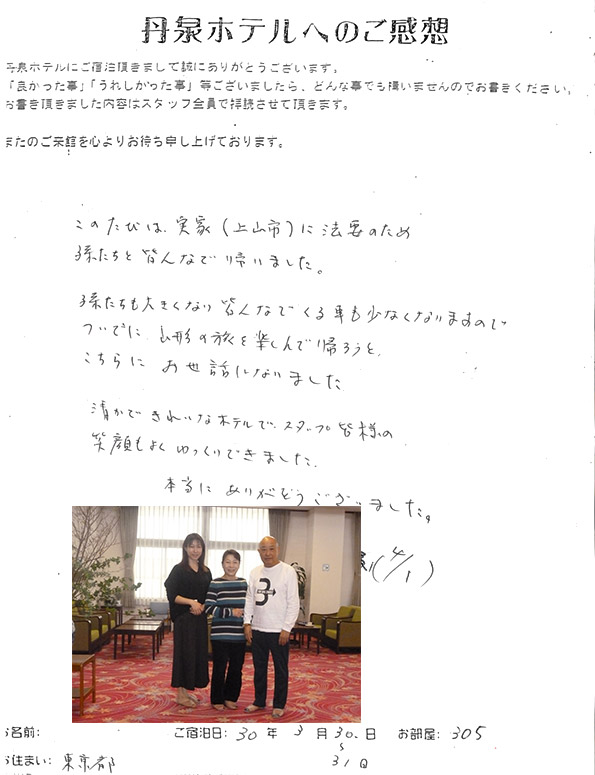 丹泉ホテルへのご感想
丹泉ホテルにご宿泊頂きまして誠にありがとうございます。
「良かった事」「うれしかった事」等ございましたら、どんな事でも構いませんのでお書きください。
お書き頂きました内容はスタッフ全員で拝読させて頂きます。
またのご来館を心よりお待ち申し上げております。
このたびは、実家(上山市)に法要のため
孫たちと皆んなで帰いました。
孫たちも大きくなり皆んなでくる事も少なくなりますので
ついでに山形の旅を楽しんで帰ろうと、
こちらにお世話になりました
清かできれいなホテルで、スタッフ皆様の
笑顔もよくゆっくりできました。
本当にありがとうございました。
(4/1)
3
お名前:
ご宿泊日: 30年 3月 30.日 お部屋: 305
お住まい: 東京都
31日